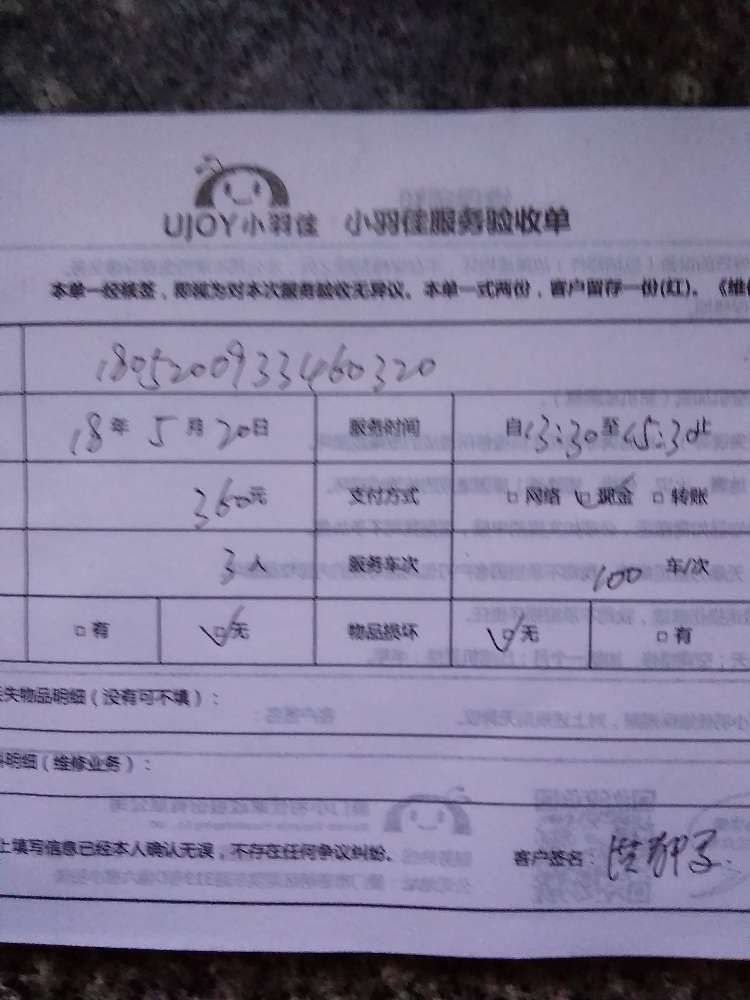 UJOY小羽佳 小羽佳服务验收单
本单一经核签，即视为对本次服务验收无异议。本单一式两份，客户留存一份(红)。《维
180520093346 0320
18年 5月 20日 服务时间 自13:30至15:30止
360元 支付方式 □网络 ☑现金 □转账
3人 服务车次 100 车/次
□有 ☑无 物品损坏 ☑无 □有
失物品明细（没有可不填）：
明细（维修业务）：
上填写信息已经本人确认无误，不存在任何争议纠纷。 客户签名：